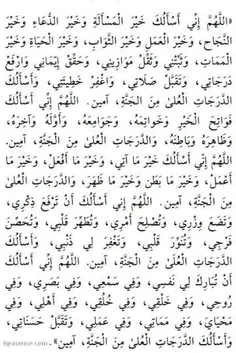 «اللَّهُمَّ إِنِّي أَسْأَلُكَ خَيْرَ الْمَسْأَلَةِ وَخَيْرَ الدُّعَاءِ وَخَيْرَ
النَّجَاحِ، وَخَيْرَ الْعَمَلِ وَخَيْرَ الثَّوَابِ، وَخَيْرَ الْحَيَاةِ وَخَيْرَ
الْمَمَاتِ، وَثَبِّتْنِي وَثَقِّلْ مَوَازِينِي، وَحَقِّقْ إِيْمَانِي وَارْفَعْ
دَرَجَاتِي، وَتَقَبَّلْ صَلَاتِي، وَاغْفِرْ خَطِيئَتِي، وَأَسْأَلُكَ
الدَّرَجَاتِ الْعُلَىٰ مِنَ الْجَنَّةِ، آمِين. اللَّهُمَّ إِنِّي أَسْأَلُكَ
فَوَاتِحَ الْخَيْرِ وَخَوَاتِمَهُ، وَجَوَامِعَهُ، وَأَوَّلَهُ وَآخِرَهُ،
وَظَاهِرَهُ وَبَاطِنَهُ، وَالدَّرَجَاتِ الْعُلَىٰ مِنَ الْجَنَّةِ، آمِين.
اللَّهُمَّ إِنِّي أَسْأَلُكَ خَيْرَ مَا آتِي، وَخَيْرَ مَا أَفْعَلُ، وَخَيْرَ مَا
أَعْمَلُ، وَخَيْرَ مَا بَطَنَ وَخَيْرَ مَا ظَهَرَ، وَالدَّرَجَاتِ الْعُلَىٰ
مِنَ الْجَنَّةِ، آمِين. اللَّهُمَّ إِنِّي أَسْأَلُكَ أَنْ تَرْفَعَ ذِكْرِي،
وَتَضَعَ وِزْرِي، وَتُصْلِحَ أَمْرِي، وَتُطَهِّرَ قَلْبِي، وَتُحَصِّنَ
فَرْجِي، وَتُنَوِّرَ قَلْبِي، وَتَغْفِرَ لِي ذَنْبِي، وَأَسْأَلُكَ
الدَّرَجَاتِ الْعُلَىٰ مِنَ الْجَنَّةِ، آمِين. اللَّهُمَّ إِنِّي أَسْأَلُكَ
أَنْ تُبَارِكَ لِي نَفْسِي، وَفِي سَمْعِي، وَفِي بَصَرِي، وَفِي
رُوحِي، وَفِي خَلْقِي، وَفِي خُلُقِي، وَفِي أَهْلِي، وَفِي
مَحْيَايَ، وَفِي مَمَاتِي، وَفِي عَمَلِي، وَتَقَبَّلْ حَسَنَاتِي،
وَأَسْأَلُكَ الدَّرَجَاتِ الْعُلَىٰ مِنَ الْجَنَّةِ، آمِين».